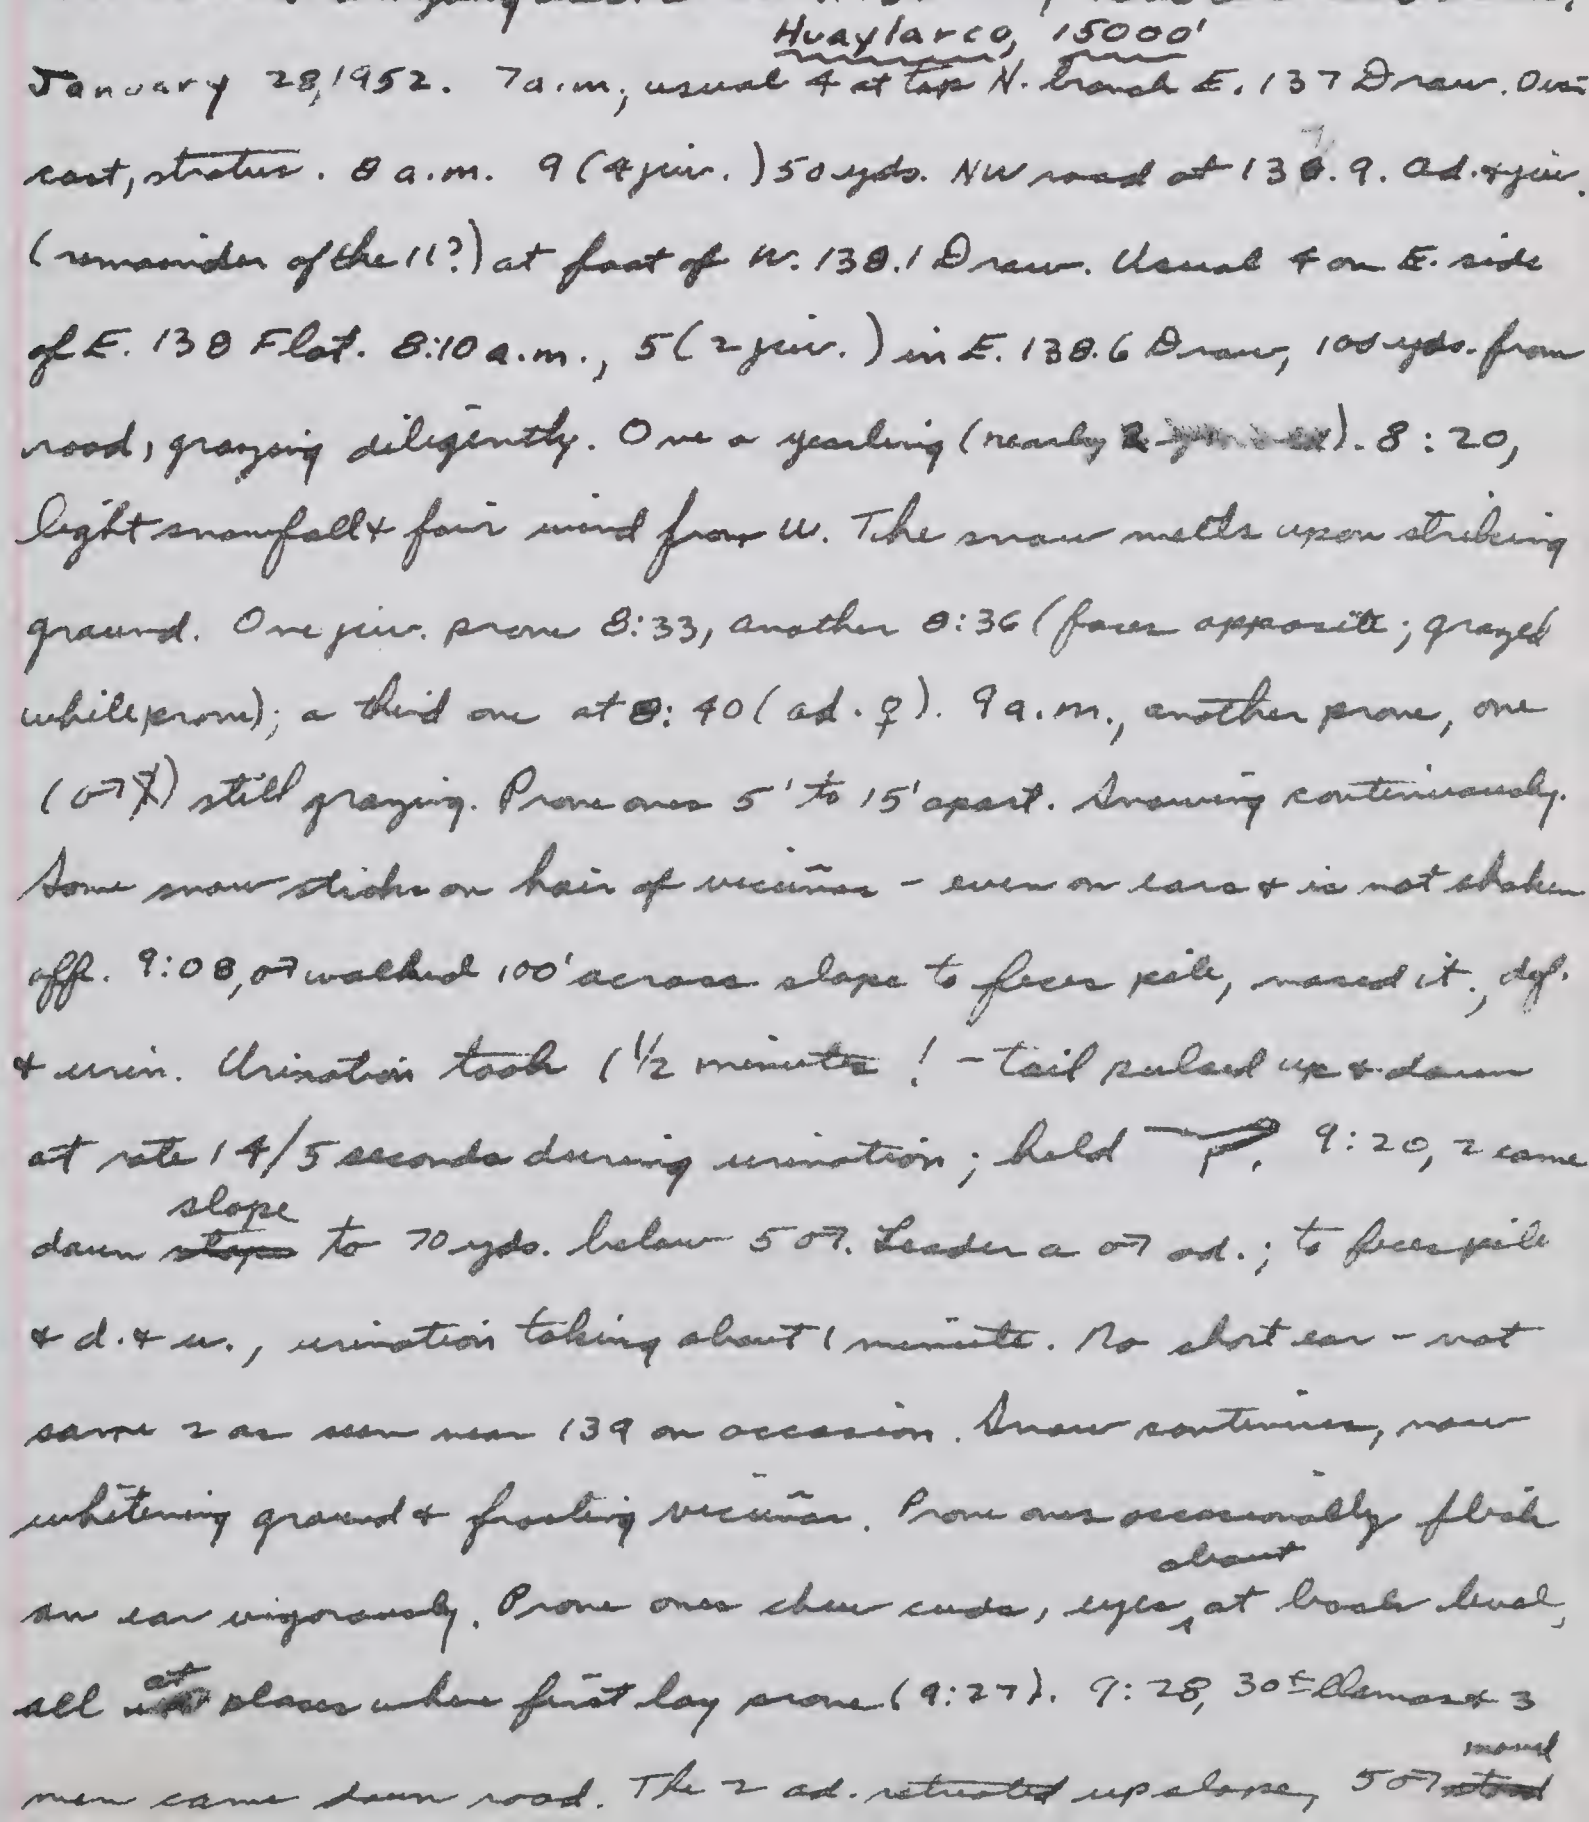 Huaylarco, 15000'
January 28, 1952. 7 a.m., usual 4 at top N. branch E. 137 Draw. Over-
cast, stratus. 8 a.m. 9 (4 juv.) 50 yds. NW road at 137.9. Ad. & juv.
(remainder of the 11?) at foot of W. 138.1 Draw. Usual 4 on E. side
of E. 138 Flat. 8:10 a.m., 5 (2 juv.) in E. 138.6 Draw, 100 yds. from
road, grazing diligently. One a yearling (nearly ). 8:20,
light snowfall & fair wind from W. The snow melts upon striking
ground. One juv. prone 8:33, another 8:36 (faces opposite; grazed
while prone); a third one at 8:40 (ad. ♀). 9 a.m., another prone, one
(♂) still grazing. Prone ones 5' to 15' apart. Snowing continuously.
Some snow sticks on hair of vicuñas - even on ears & is not shaken
off. 9:08, ♂ walked 100' across slope to feces pile, nosed it, def.
& urin. Urination took 1 1/2 minutes! - tail pulsed up & down
at rate 14/5 seconds during urination; held . 9:20, 2 came
down slope to 70 yds. below 5 ♂. Leader a ♂ ad.; to feces pile
& d. & u., urination taking about 1 minute. No short ear - not
same 2 as seen near 139 on occasion. Snow continues, now
whitening ground & frosting vicuñas. Prone ones occasionally flick
an ear vigorously. Prone ones chew cuds, eyes about at back level,
all at places where first lay prone (9:27). 9:28, 30± llamas & 3
men came down road. The 2 ad. retreated up slope, 5 ♂ moved